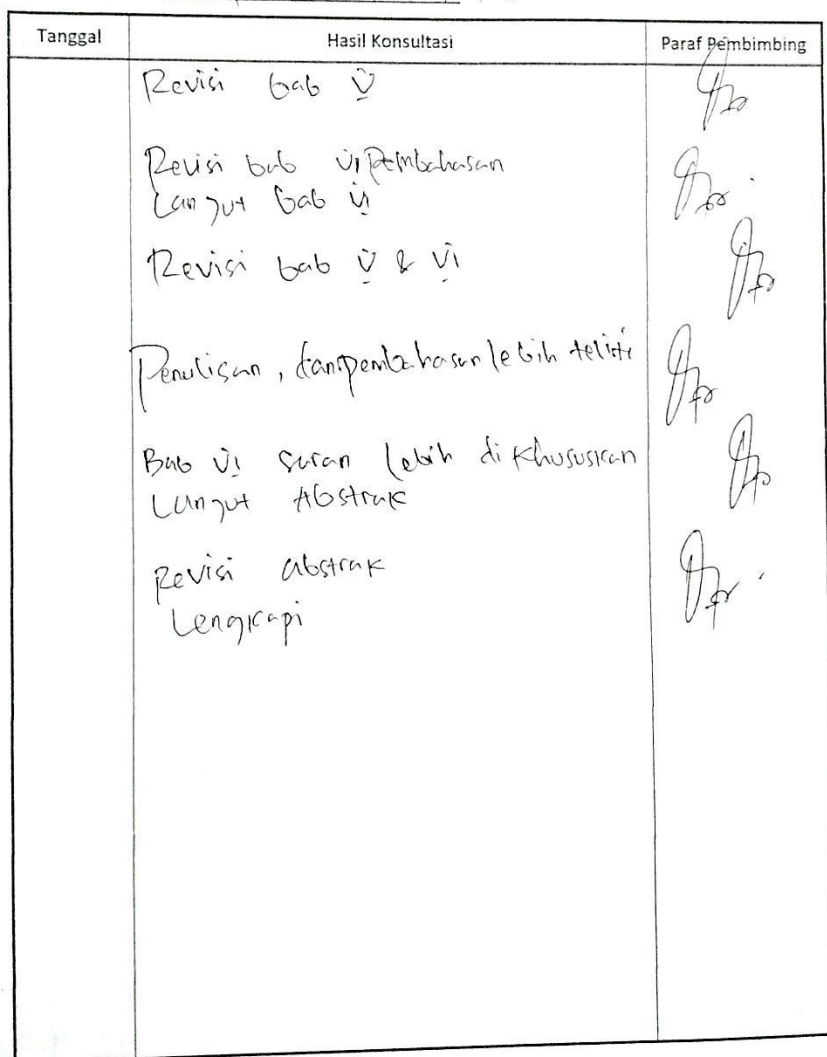 Tanggal Hasil Konsultasi Paraf Pembimbing
Revisi bab V
Revisi bab VI Pembahasan
Lanjut bab VI
Revisi bab V & VI
Penulisan, dan pembahasan lebih teliti
Bab VI saran lebih di Khususkan
Lanjut Abstrak
Revisi abstrak
Lengkapi